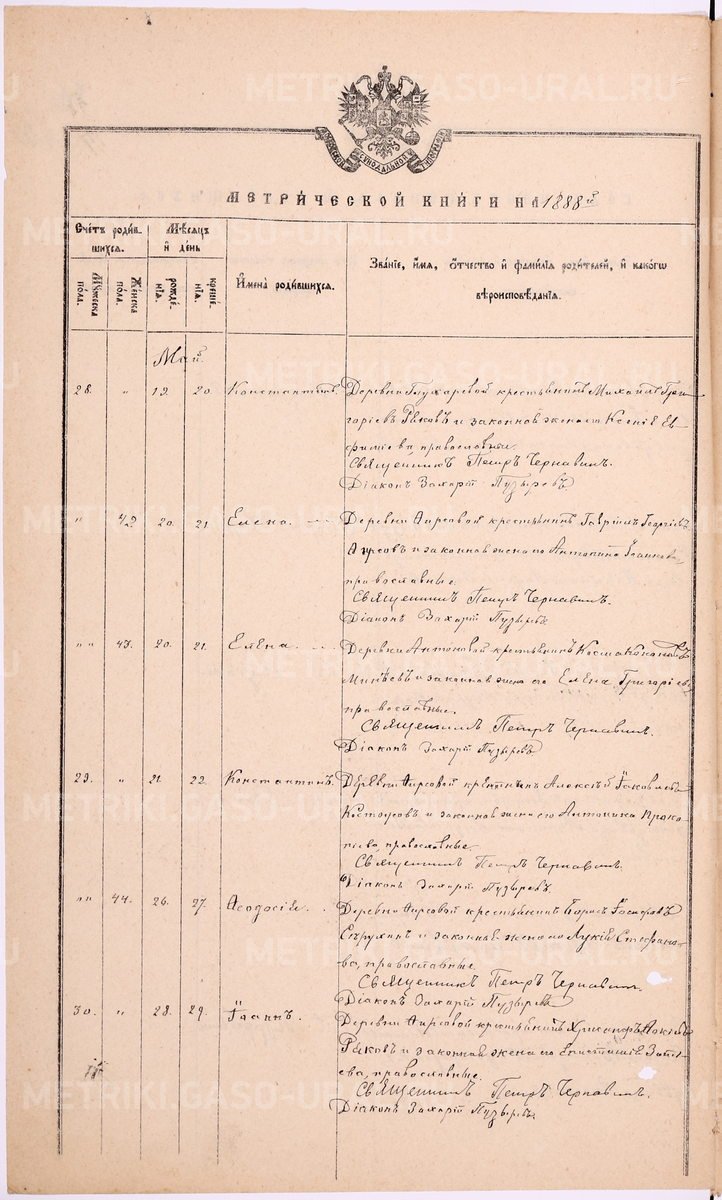 METRIKI.GASO-URAL.RU
СѴНОДАЛЬНОЙ
МЕТРИ́ЧЕСКОЙ КНИ́ГИ НА 1888й
Сче́тъ роди́в-
шихся.
Мѣ́сяцъ
и҆ день
Мꙋ́жеска
по́ла.
Же́нска
по́ла.
рожде́-
нїѧ.
креще́-
нїѧ.
И҆мена̀ роди́вшихся.
Зва́нїе, и҆́мѧ, ѻ҆́тчество и҆ фами́лїѧ роди́телей, и҆ како́гѡ
вѣроисповѣ́данїѧ.
Май.
28. " 19. 20. Константинъ. Деревни Глухаревой крестьянинъ Михаилъ Гри-
горіевъ Рыковъ и законная жена его Ксенія Ев-
фиміева, православные.
Священникъ Петръ Чернавинъ.
Діаконъ Захарій Пузыревъ
" 42. 20. 21. Елена. Деревни Фирсовой крестьянинъ Гавріилъ Георгіевъ
Фирсовъ и законная жена его Антонина Іоаннова,
православные.
Священникъ Петръ Чернавинъ.
Діаконъ Захарій Пузыревъ
" " 43. 20. 21. Елена. Деревни Антоновой крестьянинъ Косма Кононовъ
Минѣевъ и законная жена его Елена Григоріева,
православные.
Священникъ Петръ Чернавинъ.
Діаконъ Захарій Пузыревъ
29. " 21. 22. Константинъ. Деревни Фирсовой крестьянинъ Алексѣй Іаковлевъ
Костоусовъ и законная жена его Антонина Проко-
піева, православные.
Священникъ Петръ Чернавинъ.
Діаконъ Захарій Пузыревъ
" " 44. 26. 27. Ѳеодосія. Деревни Фирсовой крестьянинъ Борисъ Іосифовъ
и законная жена его Лукія Стефано-
ва, православные.
Священникъ Петръ Чернавинъ.
Діаконъ Захарій Пузыревъ
30. " 28. 29. Іоаннъ. Деревни Фирсовой крестьянинъ Хрисанфъ
Рыковъ и законная жена его
православные.
Священникъ Петръ Чернавинъ.
Діаконъ Захарій Пузыревъ